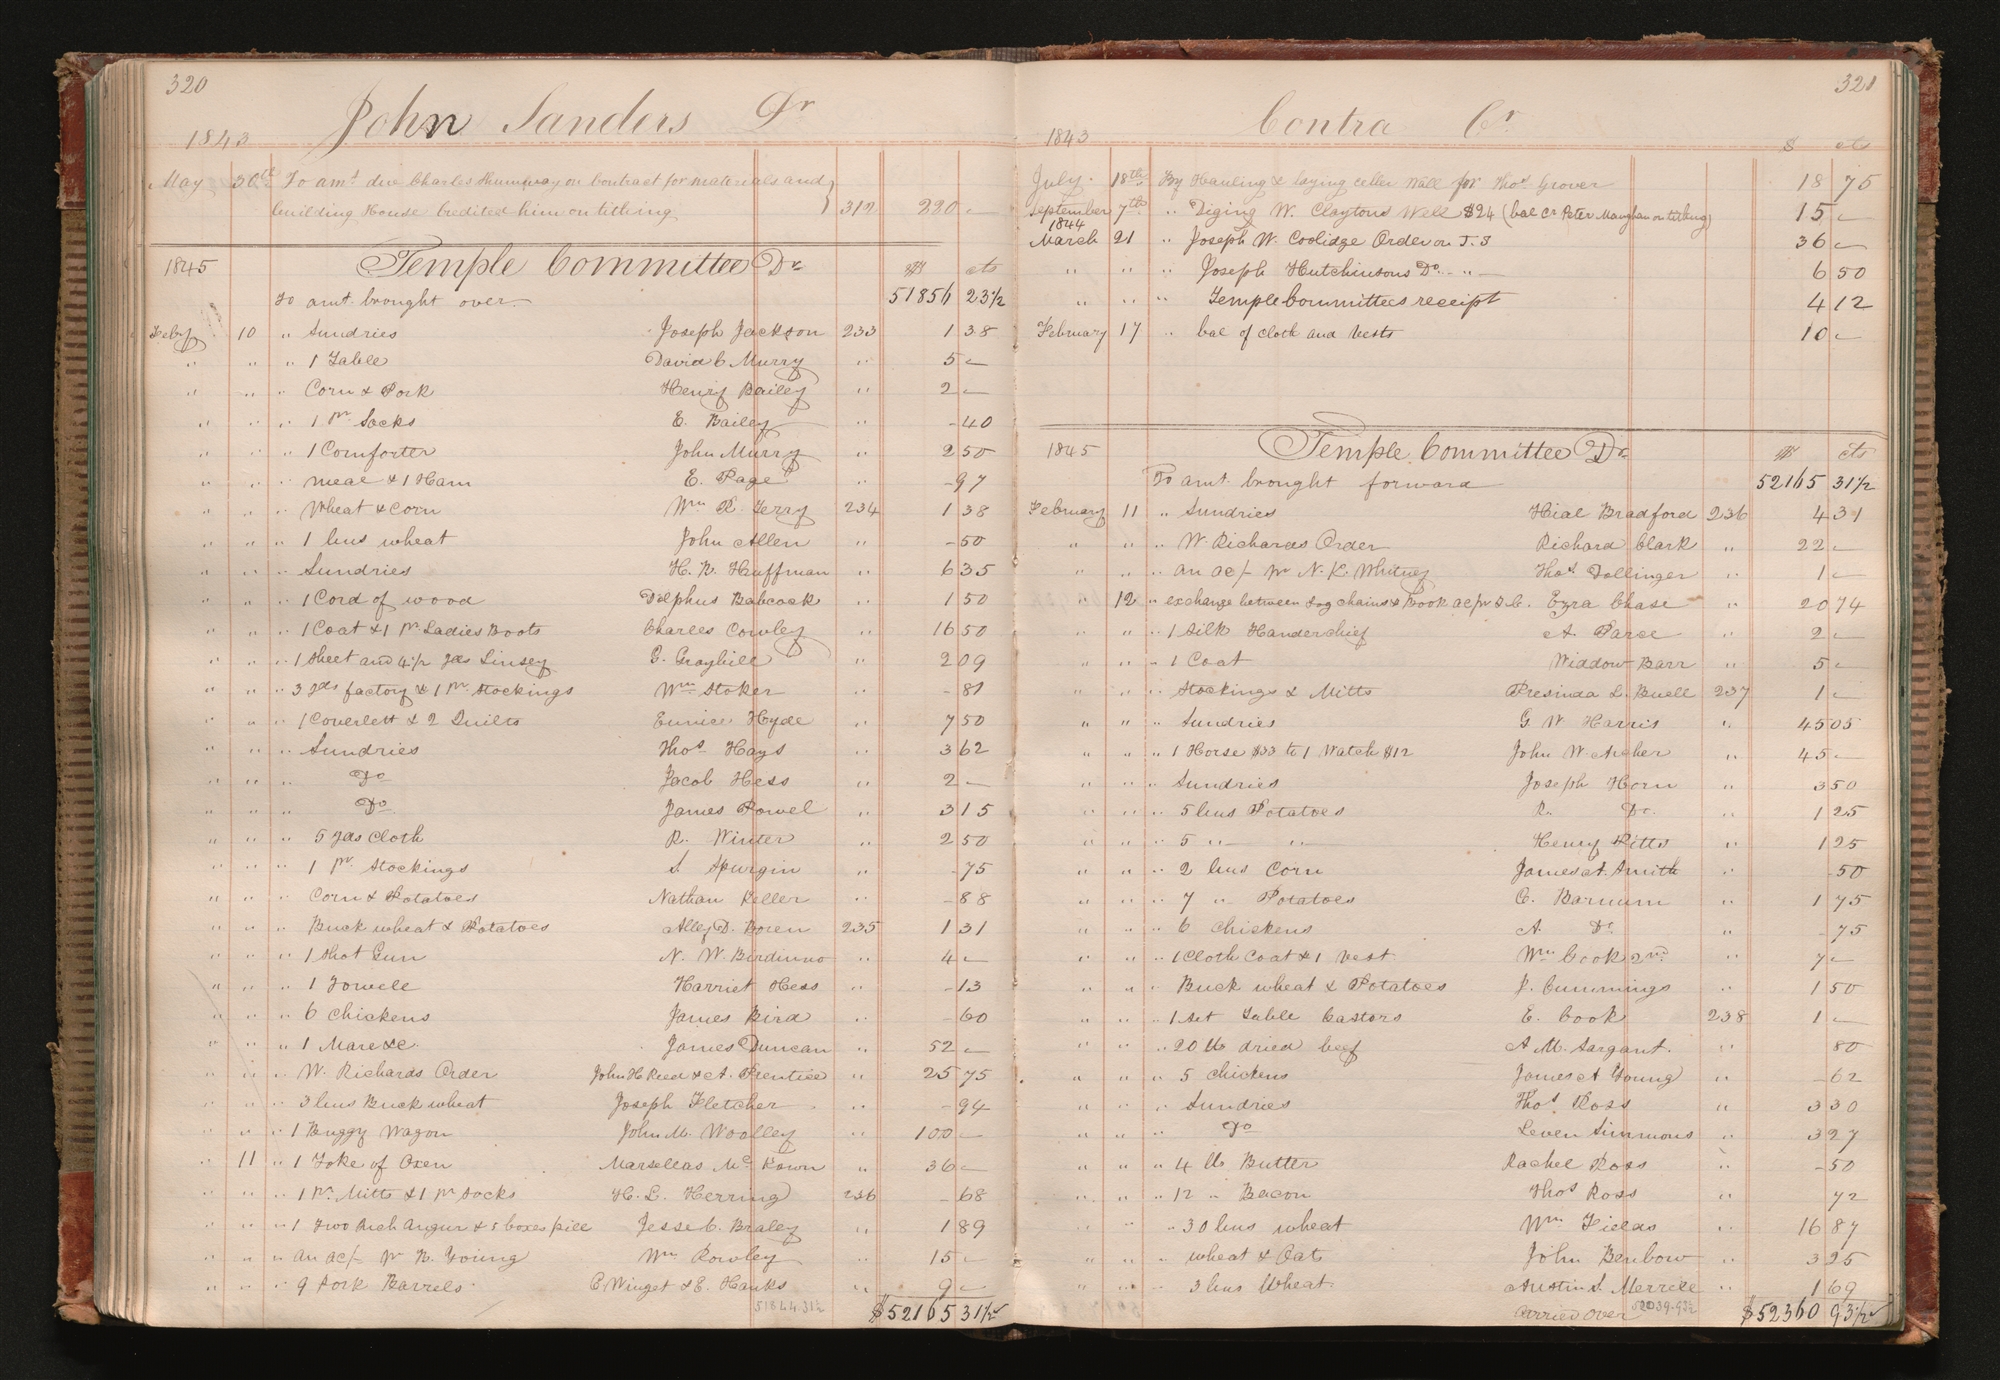 320
John Sanders Dr
1843
May 30th To amt due Charles Shumway on Contract for materials and
building House Credited him on tithing 312 220 -
1845 Temple Committee Dr $ cts
To amt. brought over 51856 23 1/2
Feby 10 " Sundries Joseph Jackson 233 1 38
" " " 1 Table David C Murry " 5 -
" " " Corn & Pork Henry Bailey " 2 -
" " " 1 pr Socks E. Bailey " - 40
" " " 1 Comforter John Murry " 2 50
" " " meal & 1 Ham E. Page " - 97
" " " Wheat & Corn Wm R. Terry 234 1 38
" " " 1 bus wheat John Allen " - 50
" " " Sundries H. R. Huffman " 6 35
" " " 1 Cord of wood Dolphus Babcock " 1 50
" " " 1 Coat & 1 Pr Ladies Boots Charles Cowley " 16 50
" " " 1 Sheet and 4 1/2 yds Linsey G. Graybill " 2 09
" " " 3 yds factory & 1 Pr Stockings Wm Stoker " - 81
" " " 1 Coverlett & 2 Quilts Eunice Hyde " 7 50
" " " Sundries Thos Hays " 3 62
" " " Do Jacob Hess " 2 -
" " " Do James Powel " 3 15
" " " 5 yds Cloth R. Winter " 2 50
" " " 1 Pr. Stockings S. Spurgin " - 75
" " " Corn & Potatoes Nathan Keller " - 88
" " " Buck wheat & Potatoes Alley D. Boren 235 1 31
" " " 1 Shot Gun N. W. Birdinno " 4 -
" " " 1 Towell Harriet Hess " - 13
" " " 6 Chickens James Bird " - 60
" " " 1 Mare &c. James Duncan " 52 -
" " " W. Richards Order John H Reed & A. Prentice " 25 75
" " " 3 bus Buck wheat Joseph Fletcher " - 94
" " " 1 Buggy Wagon John M. Woolley " 100 -
" 11 " 1 Yoke of Oxen Marsellas Mc Kown " 36 -
" " " 1 Pr Mitts & 1 pr Socks H. L. Herring 236 - 68
" " " 1 Two Inch Augur & 5 boxes pill Jesse C. Braley " 1 89
" " " an ac/- pr B. Young Wm Rowley " 15 -
" " " 9 Pork Barrels C. Winget & E. Hanks " 9 -
51844.31 1/2 $52165 31 1/2
321
Contra Cr
1843 $ cts
July 18th By Hauling & laying celler Wall for Thos Grover 18 75
September 7th " Diging W. Claytons Well $24 (bal Cr Peter Maughan on tithing) 15 -
1844
March 21 " Joseph W. Coolidge Order on J. S 36 -
" " " Joseph Hutchinsons Do " - 6 50
" " " Temple Committees receipt 4 12
February 17 " bal of cloth and Vests 10 -
1845 Temple Committee Dr $ cts
To amt. brought forward 52165 31 1/2
February 11 " Sundries Hial Bradford 236 4 31
" " " W. Richards Order Richard Clark " 22 -
" " " an ac/- pr N. K. Whitney Thos Dollinger " 1 -
" 12 " exchange between Log chains & Book ac/ pr D. C. Ezra Chase " 20 74
" " " 1 Silk Handerchief A. Parce " 2 -
" " " 1 Coat Widdow Barr " 5 -
" " " Stockings & Mitts Presinda L. Buell 237 1 -
" " " Sundries G W Harris " 45 05
" " " 1 Horse $33 to 1 Watch $12 John W. Archer " 45 -
" " " Sundries Joseph Horn " 3 50
" " " 5 bus Potatoes R. Do. " 1 25
" " " 5 " " Henry Pitts " 1 25
" " " 2 bus Corn James A. Smith " 50
" " " 7 " Potatoes C. Barnum " 1 75
" " " 6 Chickens A. Do " 75
" " " 1 Cloth Coat & 1 Vest Wm Cook 2nd " 7 -
" " " Buck wheat & Potatoes J. Cummings " 1 50
" " " 1 Set Table Castors E. Cook 238 1 -
" " " 20 lb dried beef A. M. Sargant. " 80
" " " 5 Chickens James A Young " - 62
" " " Sundries Thos Ross " 3 30
" " " Do Leven Simmons " 3 27
" " " 4 lb Butter Rachel Ross " - 50
" " " 12 " Bacon Thos Ross " 72
" " " 30 bus wheat Wm Fields " 16 87
" " " wheat & Oat John Benbow " 3 25
" " " 3 bus Wheat Austin S. Merrell " 1 69
Carried Over 52039.93 1/2 $52360 93 1/2